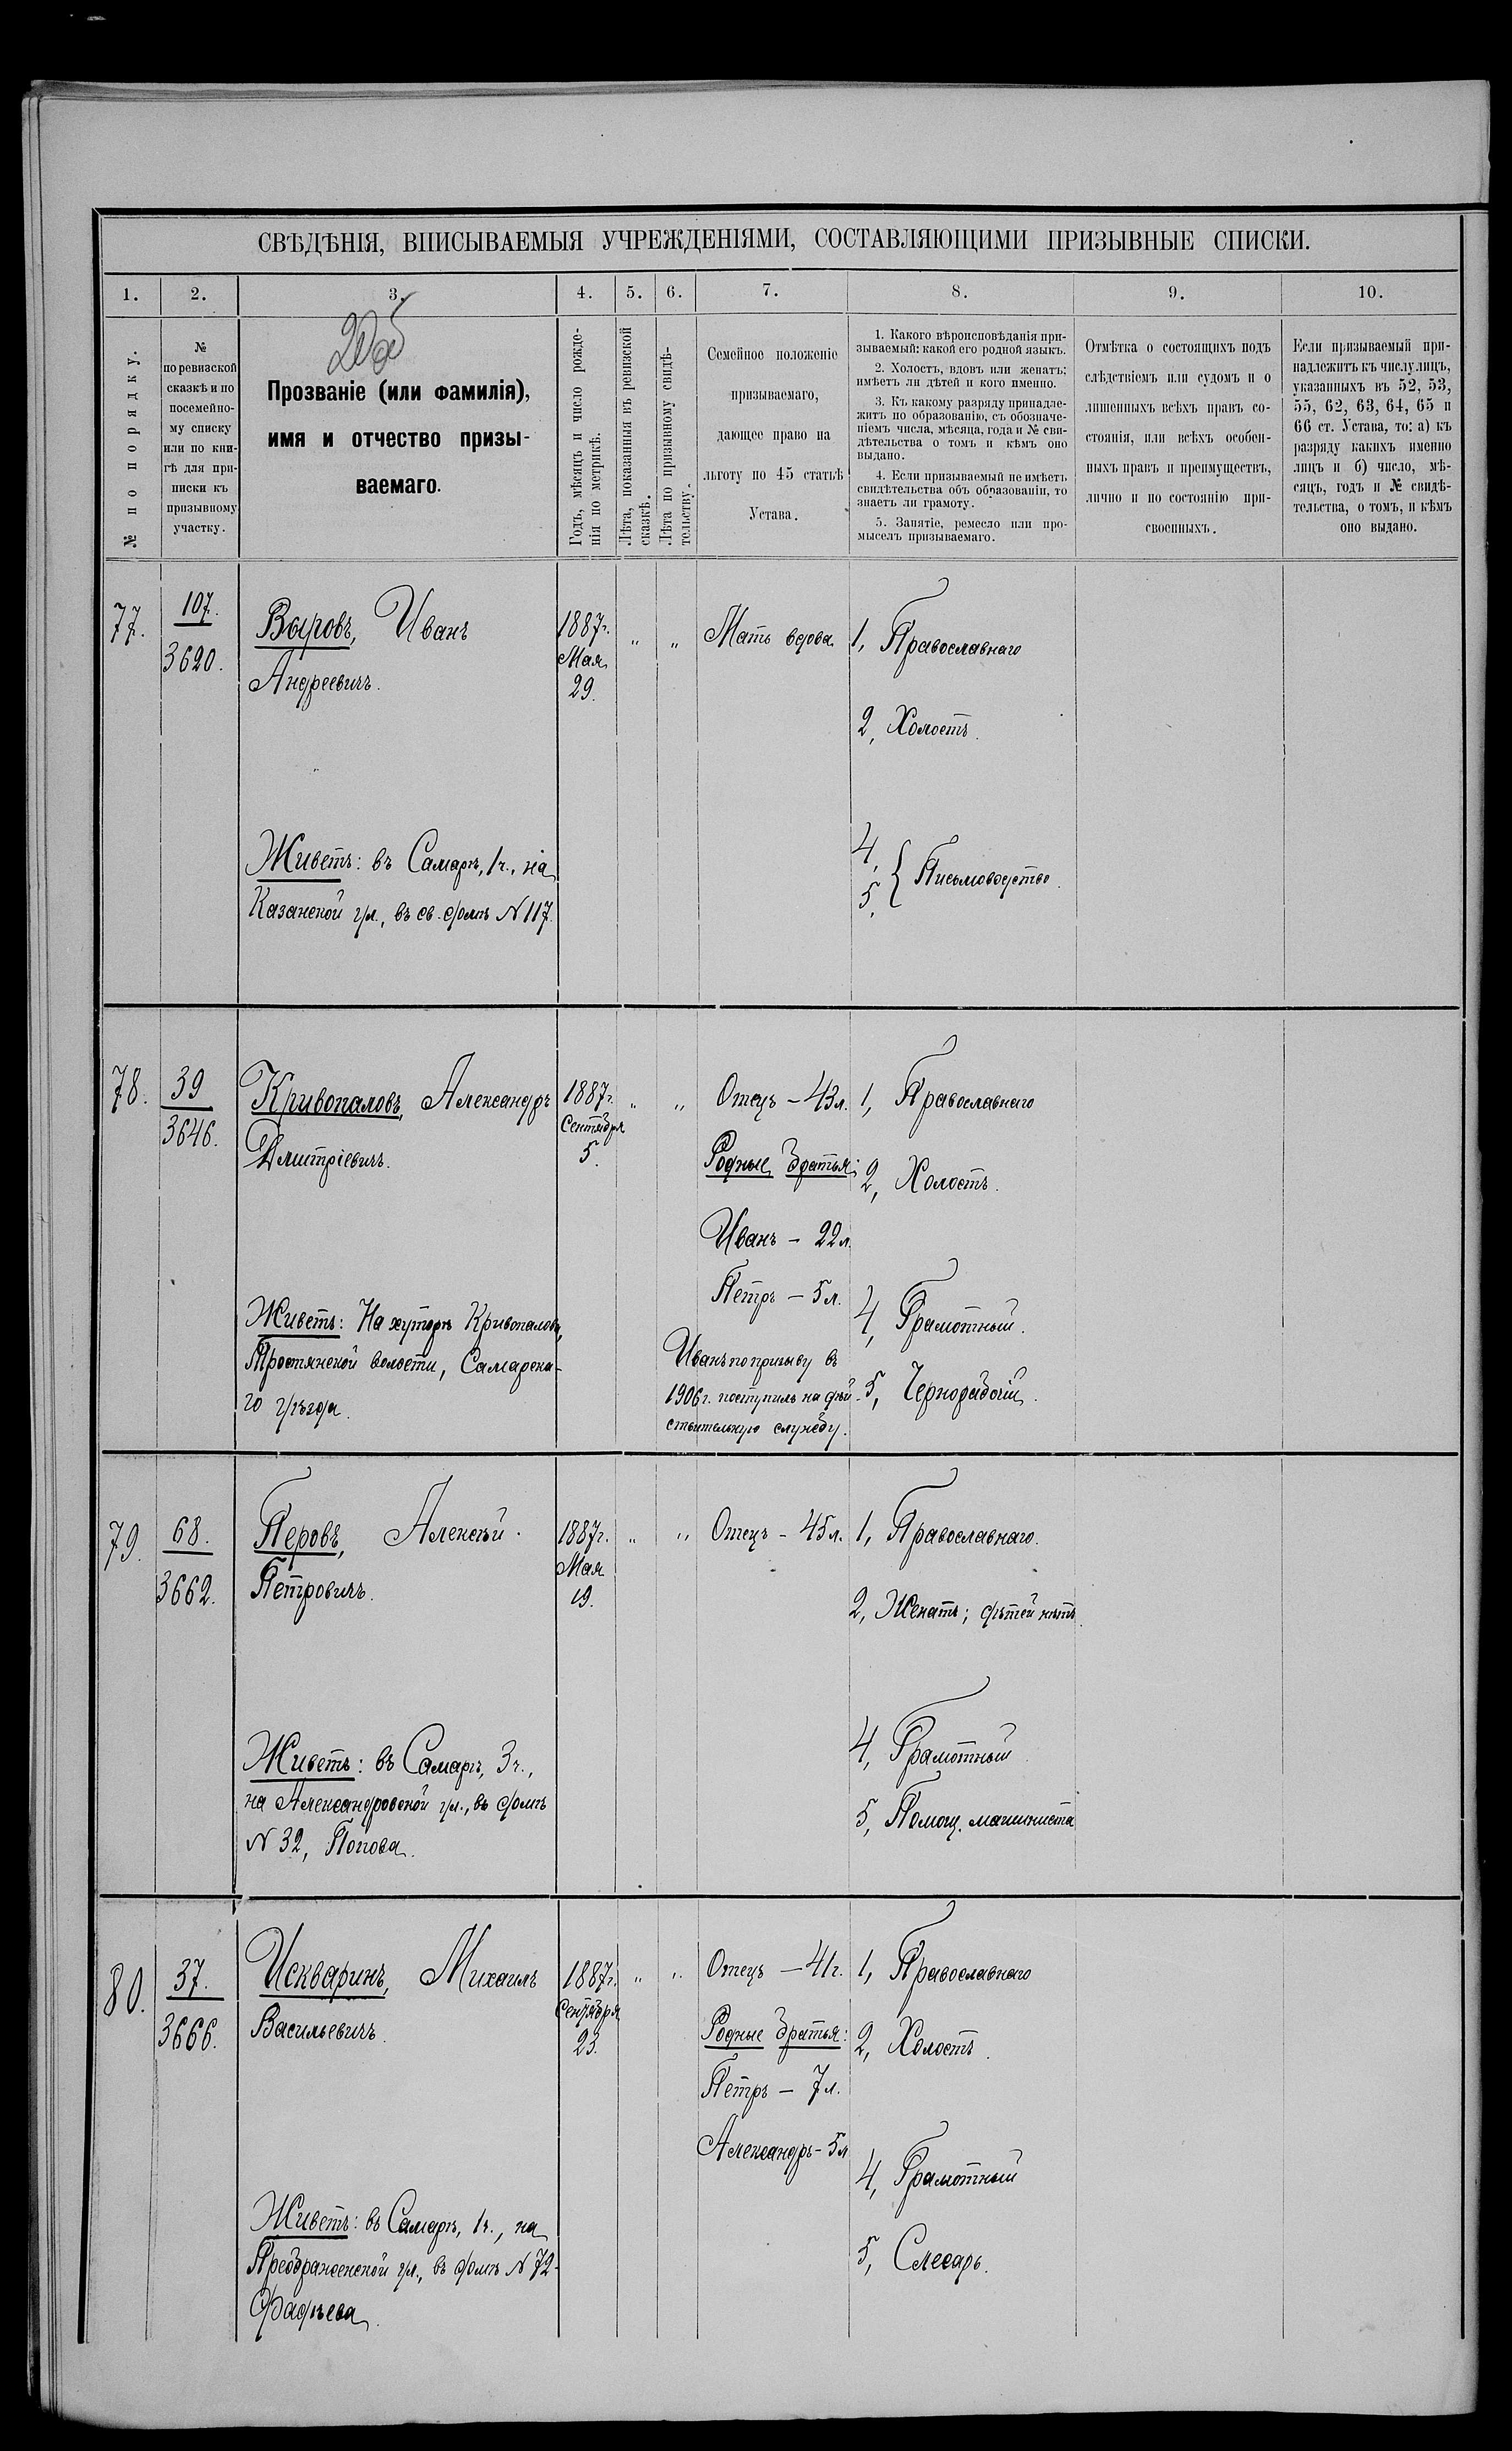 СВѢДѢНІЯ, ВПИСЫВАЕМЫЯ УЧРЕЖДЕНІЯМИ, СОСТАВЛЯЮЩИМИ ПРИЗЫВНЫЕ СПИСКИ.
1. 2. 3. 4. 5. 6. 7. 8. 9. 10.
№ по порядку.
№
по ревизской
сказкѣ и по
посемейно-
му списку
или по кни-
гѣ для при-
писки къ
призывному
участку.
Прозваніе (или фамилія),
имя и отчество призы-
ваемаго.
Годъ, мѣсяцъ и число рожде-
нія по метрикѣ.
Лѣта, показанныя въ ревизской
сказкѣ.
Лѣта по призывному свидѣ-
тельству.
Семейное положеніе
призываемаго,
дающее право на
льготу по 45 статьѣ
Устава.
1. Какого вѣроисповѣданія при-
зываемый: какой его родной языкъ.
2. Холостъ, вдовъ или женатъ:
имѣетъ ли дѣтей и кого именно.
3. Къ какому разряду принадле-
житъ по образованію, съ обозначе-
ніемъ числа, мѣсяца, года и № сви-
дѣтельства о томъ и кѣмъ оно
выдано.
4. Если призываемый не имѣетъ
свидѣтельства объ образованіи, то
знаетъ ли грамоту.
5. Занятіе, ремесло или про-
мыселъ призываемаго.
Отмѣтка о состоящихъ подъ
слѣдствіемъ или судомъ и о
лишенныхъ всѣхъ правъ со-
стоянія, или всѣхъ особен-
ныхъ правъ и преимуществъ,
лично и по состоянію при-
своенныхъ.
Если призываемый при-
надлежитъ къ числу лицъ,
указанныхъ въ 52, 53,
55, 62, 63, 64, 65 и
66 ст. Устава, то: а) къ
разряду какихъ именно
лицъ и б) число, мѣ-
сяцъ, годъ и № свидѣ-
тельства, о томъ, и кѣмъ
оно выдано.
77.
107.
3620.
Выровъ, Иванъ
Андреевичъ.
Живетъ: въ Самарѣ, 1ч., на
Казанской ул., въ св. домѣ N 117.
1887г.
Мая
29.
" "
Мать вдова.
1, Православнаго
2, Холостъ.
4,
5, { Письмоводство.
78.
39
3646.
Кривопаловъ, Александръ
Дмитріевичъ.
Живетъ: На хуторѣ Кривопалова,
Тростянской волости, Самарска-
го уѣзда.
1887г.
Сентября
5.
" "
Отецъ – 43л.
Родные братья:
Иванъ – 22л.
Петръ – 5л.
Иванъ по призыву въ
1906г. поступилъ на дѣй-
ствительную службу.
1, Православнаго
2, Холостъ.
4, Грамотный.
5, Чернорабочій.
79.
68.
3662.
Перовъ, Алексѣй
Петровичъ.
Живетъ: въ Самарѣ, 3ч.,
на Александровской ул., въ домѣ
N 32, Попова.
1887г.
Мая
19.
" "
Отецъ – 45л.
1, Православнаго.
2, Женатъ; дѣтей нѣтъ.
4, Грамотный
5, Помощ. машиниста
80.
37.
3666.
Искваринъ, Михаилъ
Васильевичъ.
Живетъ: въ Самарѣ, 1ч., на
Преображенской ул., въ домѣ N 72
Фадѣева.
1887г.
Сентября
23.
" "
Отецъ – 41г.
Родные братья:
Петръ – 7л.
Александръ – 5л
1, Православнаго
2, Холостъ.
4, Грамотный
5, Слесарь.